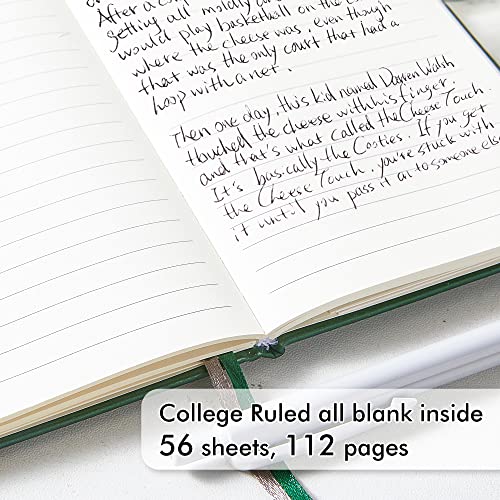 After a
getting all moldy and
would play basketball on the
where the cheese was, even though
that was the only court that had a
hoop with a net.
Then one day, this kid named Darren Walsh
touched the cheese with his finger,
and that's what called the Cheese Touch.
It's basically the Cooties. If you get
the Cheese Touch, you're stuck with
it until you pass it on to someone else
College Ruled all blank inside
56 sheets, 112 pages